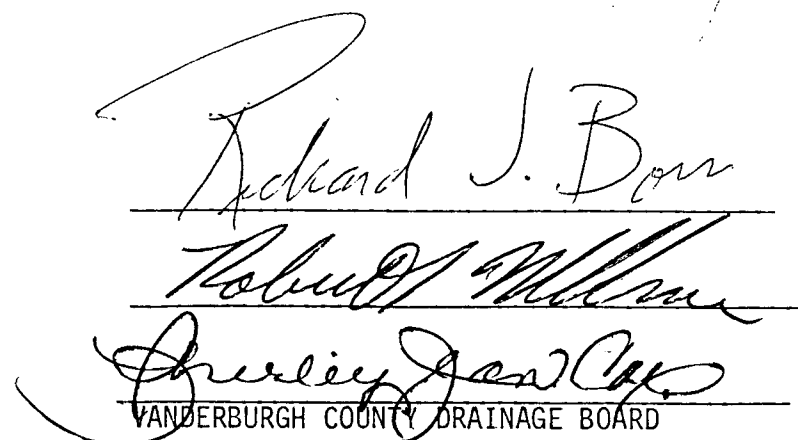 Richard J. Borr
Robert L. Willner
Shirley Jean Cox
VANDERBURGH COUNTY DRAINAGE BOARD